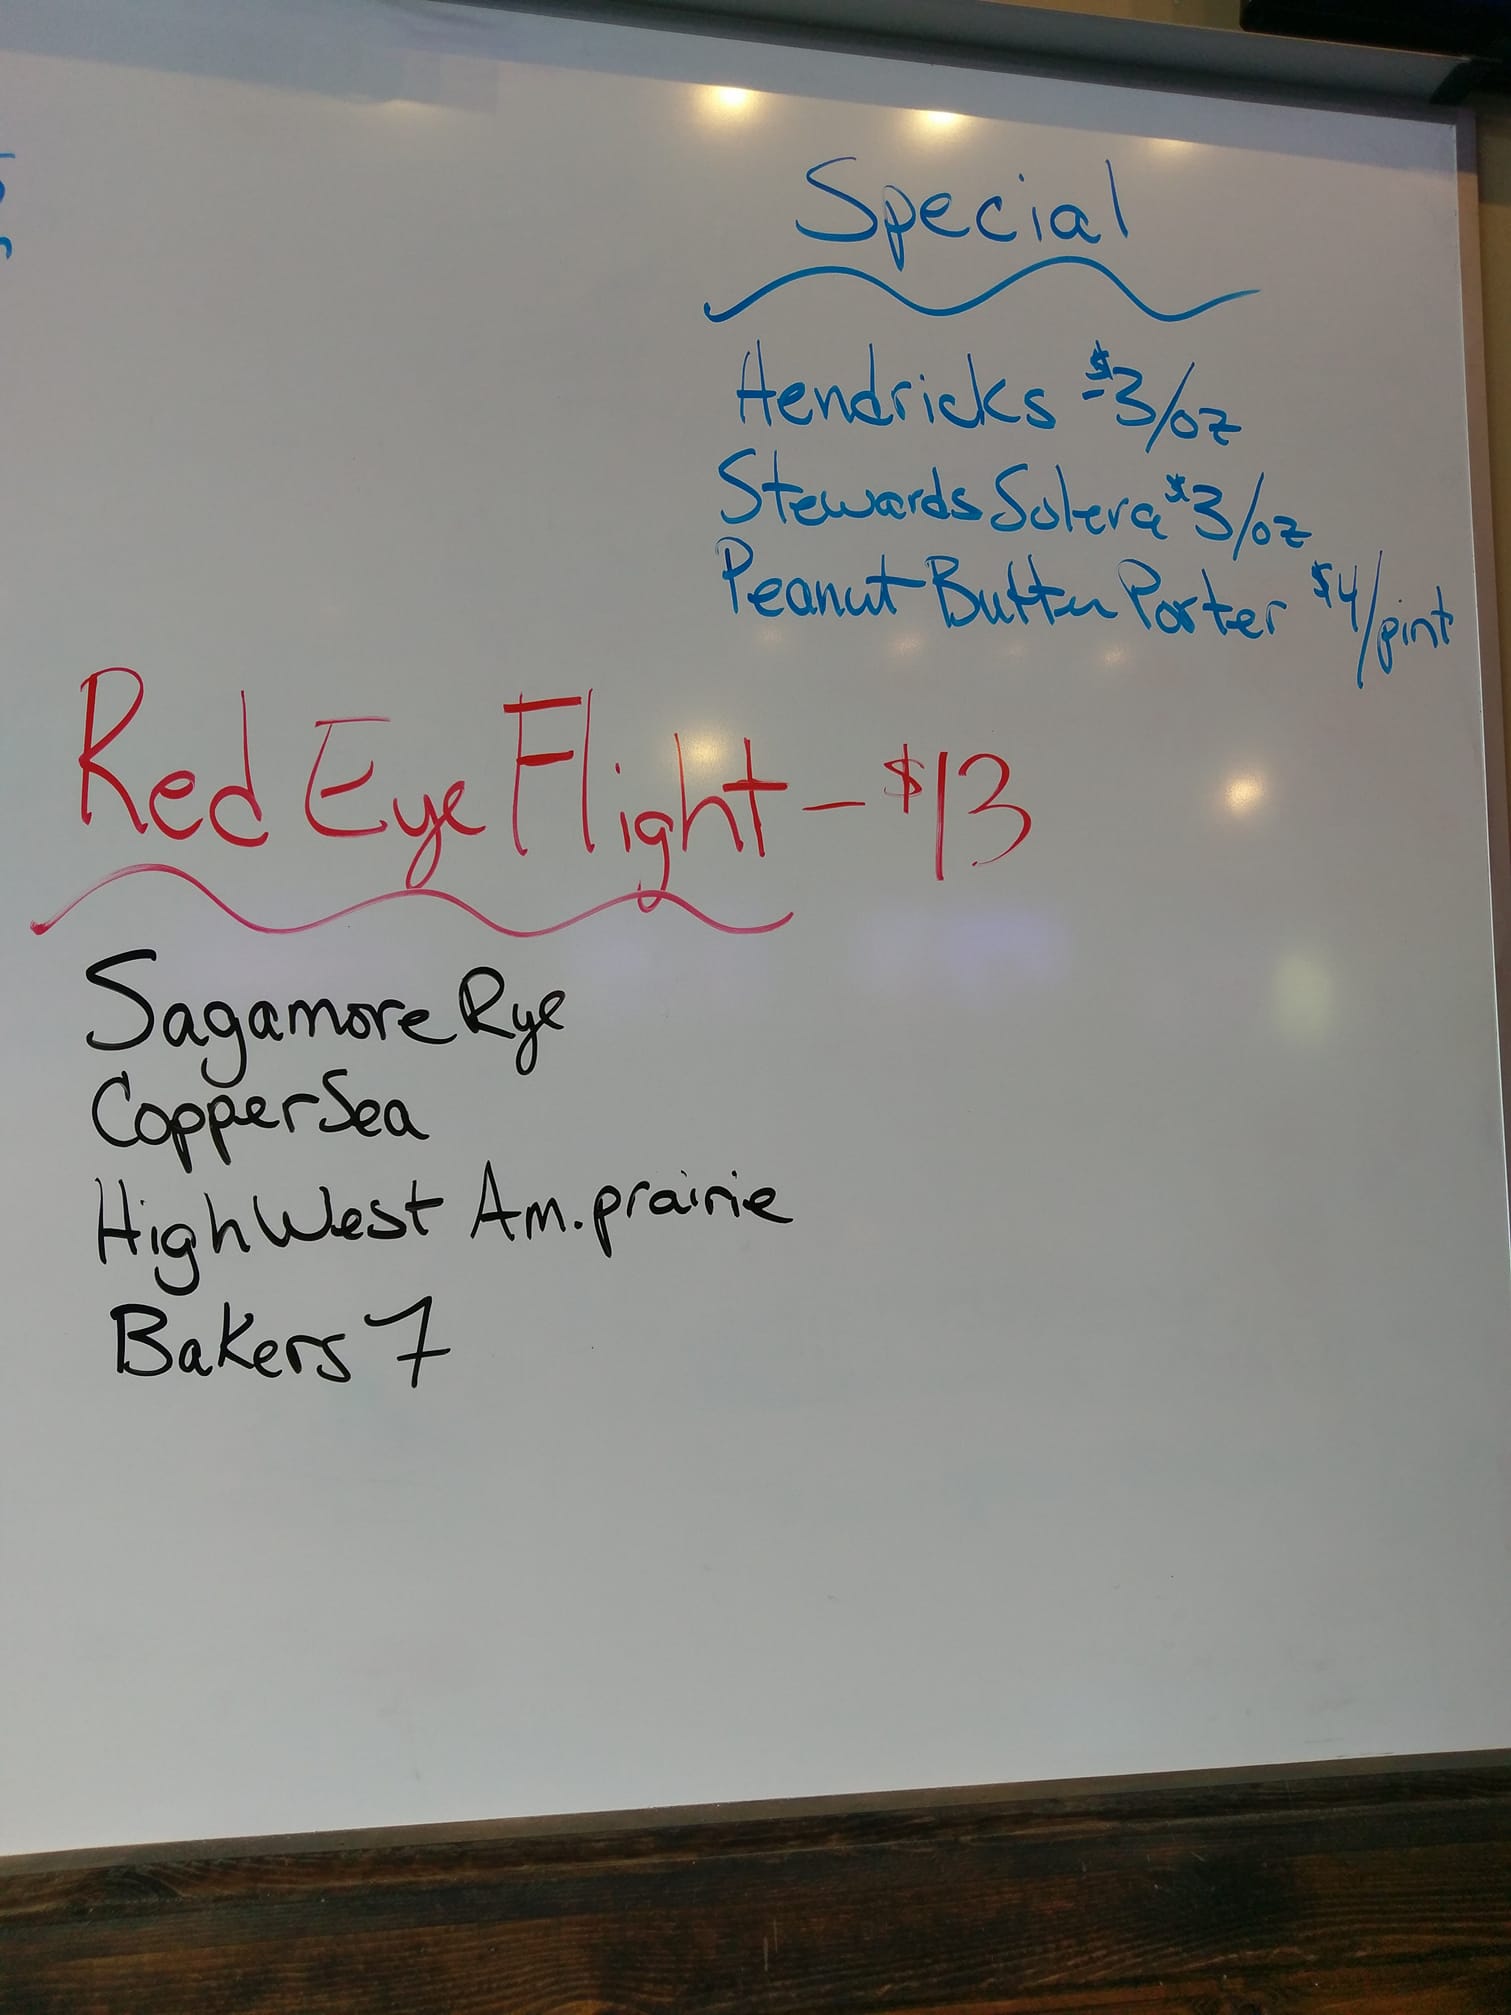 Special
Hendricks -$3/oz
Stewards Solera $3/oz
Peanut Butter Porter $4/pint
Red Eye Flight - $13
Sagamore Rye
Copper Sea
High West Am. prairie
Bakers 7